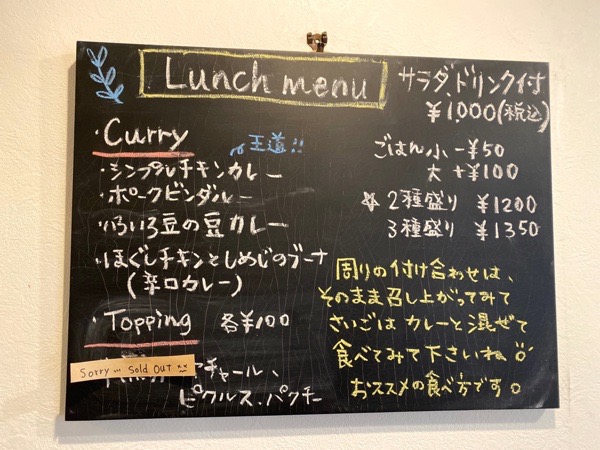 Lunch menu
サラダ、ドリンク付
¥1,000(税込)
・Curry
王道!!
・シンプルチキンカレー
・ポークビンダルー
・いろいろ豆の豆カレー
・ほぐしチキンとしめじのブーナ
(辛口カレー)
ごはん小 -¥50
大 +¥100
☆2種盛り ¥1200
3種盛り ¥1350
・Topping 各¥100
Sorry… Sold Out
アチャール、
ピクルス・パクチー
周りの付け合わせは、
そのまま召し上がってみて
さいごは カレーと混ぜて
食べてみて下さいね
おススメの食べ方です。